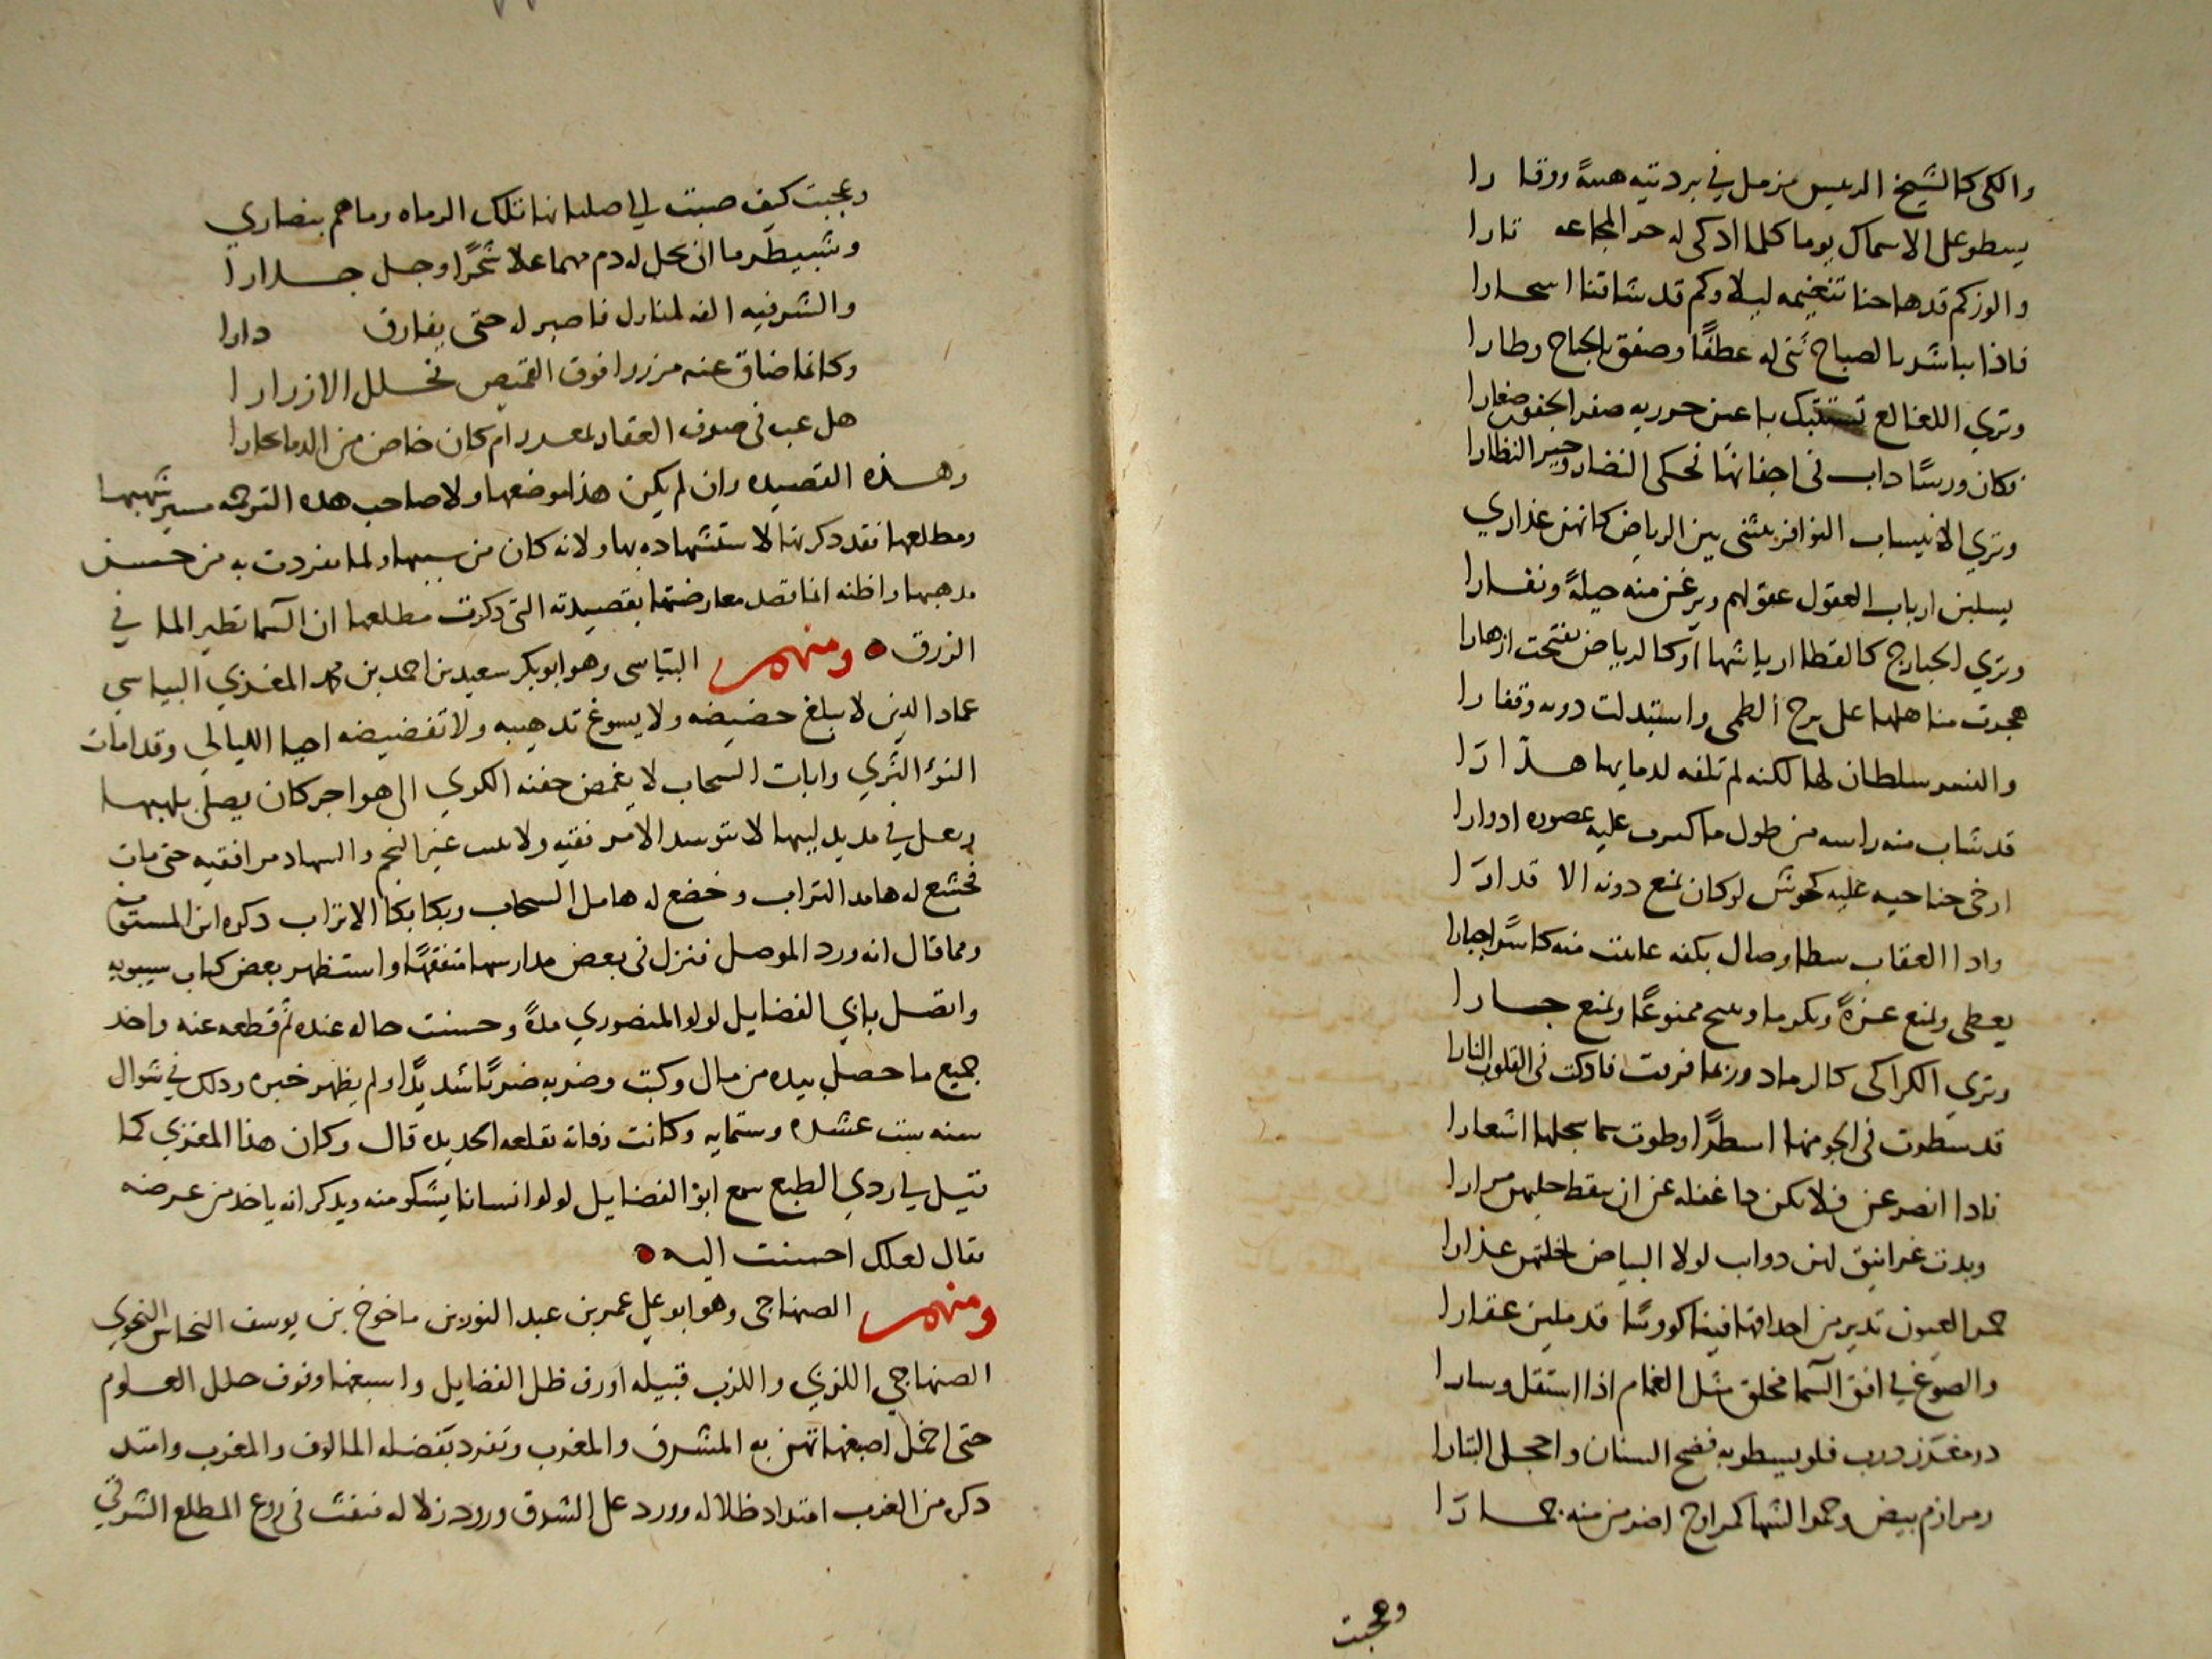 والكي كالشيخ الرييس مزمل في بردتيه هيبةً ووقا را
يسطو على الاسماك يوما كلما اذكى له حر المجاعه نارا
والوزكم قد هاجنا تنغيمه ليلا وكم قد شاقنا اسحارا
فاذا تباشر بالصباح ثنى له عطفًا وصفق بالجناح وطارا
وتري اللغالع تستبيك باعين صفر الجفون صغارا
فكان ورسًا داب في اجفانها تحكي النضار وحير النظارا
وتري الانيساب النوافر تنثنى بين الرياض كانهن عذاري
يسلبن ارباب العقول عقولهم ويرغن منه حيلةً ونفارا
وتري الحبارج كالقطا ارياشها اوكالرياض تفتحت ازهارا
هجرت مناهلها على برح الظمى واستبدلت دوىه وقفا را
والنسر سلطان لها لكنه لم تلفه لدمايها هدّ ارَا
قد شاب منه راسه من طول ما كرت عليه عصوره ادوارا
ارخى جناحيه عليه كجوشن لوكان يمنع دونه الا قد ارَا
واذا العقاب سطا وصال بكفه عاينت منه كاسرًا جبارا
يعطى ويمنع عزةً وتكرما ويبيح ممنوعًا ويمنع جارا
وتري الكراكى كالرماد وربما قربت فاذكت في القلوب النارا
قد سطرت في الجو منها اسطرًا وطوت سما سجلها اشعارا
فاذا انصرعن فلا تكن ذا غفله عن ان يلقط حليهن مرارا
وبدت غرانيق لهن دوايب لولا البياض لخلتهن عذارا
حمر العيون تدير من احداقها فينا كووسًا قد ملين عقارا
والصوغ في افق السما محلق مثل الغمام اذا استقل وسارا
ذو مغرز درب فلو يسطو به فضح السنان واخجل البتارا
ومرازم بيض وحمر الشها كمراوح اضرمن منه جما رَا
وعجبت
وعجبت كيف صبت الي صلبانها تلك الرماه وما هم بنصاري
وشبيطر ما ان يحل له دم مهما علا شجرًا وجل جدارا
والشر فيه الف لمنازل ناصبر له حتى يفارق دارا
وكانما ضاق عنه مزررا فوق القميص تخلل الازرارا
هل عب في صرف العقار بمغرز ام كان خاض من الدما بحارا
وهذه القصيده وان لم يكن هذا موضعها ولا صاحب هذه الترجمه مسير شهبها
ومطلعها فقد ذكرتها لاستشهاده بها ولانه كان من سببها ولما تفردت به من حسن
مذهبها واظنه انما قصد معارضتها بقصيدته التى ذكرت مطلعها ان السما نظير الما في
الزرق ومنهم البياسى وهو ابوبكر سعيد بن احمد بن محمد المغزي البياسي
عماد الدين لا يبلغ حضيضه ولا يسوغ تذهيبه ولا تفضيضه احيا الليالي وقد امات
النوؤ الثري وابات السحاب لا يغمض جفنه الكري الى هواجر كان يصلى بلهبها
ويعل في مديد ليلها لا يتوسد الا مرفقيه ولا يحسب غير النجم والسهاد مرافقيه حتى مات
فخشع له هامد التراب وخضع له هامل السحاب وبكا بكا الاتراب ذكره ابن المستوفى
ومما قال انه ورد الموصل فنزل في بعض مدارسها متفقهًا واستظهر بعض كتاب سيبويه
واتصل بابي الفضايل لولو المنصوري مدةً وحسنت حاله عنده ثم قطعه عنه واخذ
جميع ما حصل بيده من مال وكتب وضربه ضربًا شديدًا ولم يظهر خبره وذلك في شوال
سنه ست عشره وستمايه وكانت وفاته بقلعه الحديده قال وكان هذا المغزي كما
قيل لي ردي الطبع سمع ابو الفضايل لولوا انسانا يشكو منه ويذكر انه ياخذ من عرضه
فقال لعلك احسنت اليه
ومنهم الصنهاجى وهو ابو علي عمر بن عبد النور بن ماخوخ بن يوسف النحاس النحوي
الصنهاجي اللزبي واللزب قبيله اورف ظل الفضايل واسبغها وفوف حلل العلوم
حتى اخمل اصبغها تهن به المشرق والمغرب وتفرد بفضله المالوف والمغرب وامتد
ذكره من الغرب امتداد ظلاله وورد على الشرق ورود زلاله فنفث في روع المطلع الشرقي